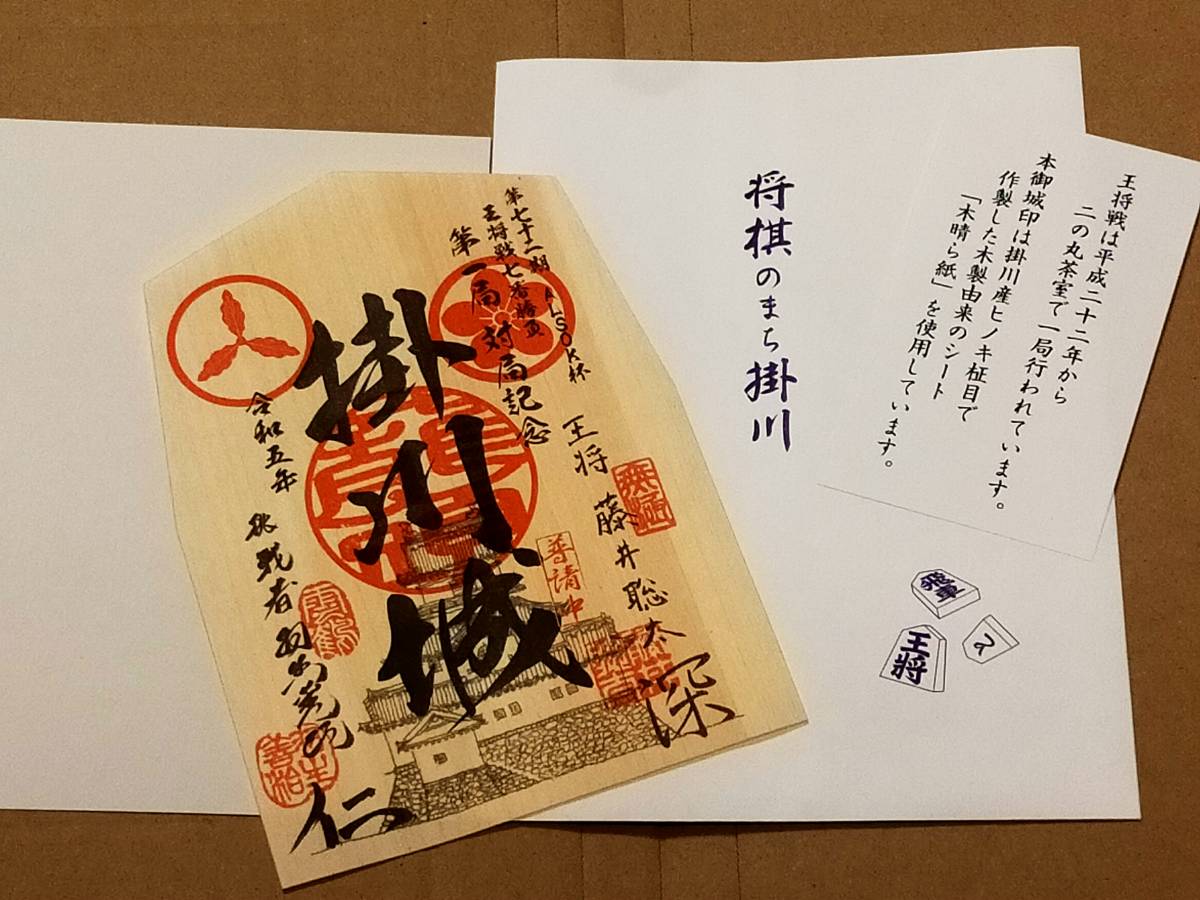 王将戦は平成二十二年から
二の丸茶室で一局行われています。
本御城印は掛川産ヒノキ柾目で
作製した木製由来のシート
「木晴ら紙」を使用しています。
将棋のまち掛川
飛車
王将
第七十二期 ALSOK杯
王将戦七番勝負
第一局 対局記念
王将 藤井聡太
深
普請中
掛川城
令和五年
挑戦者 羽生善治
仁